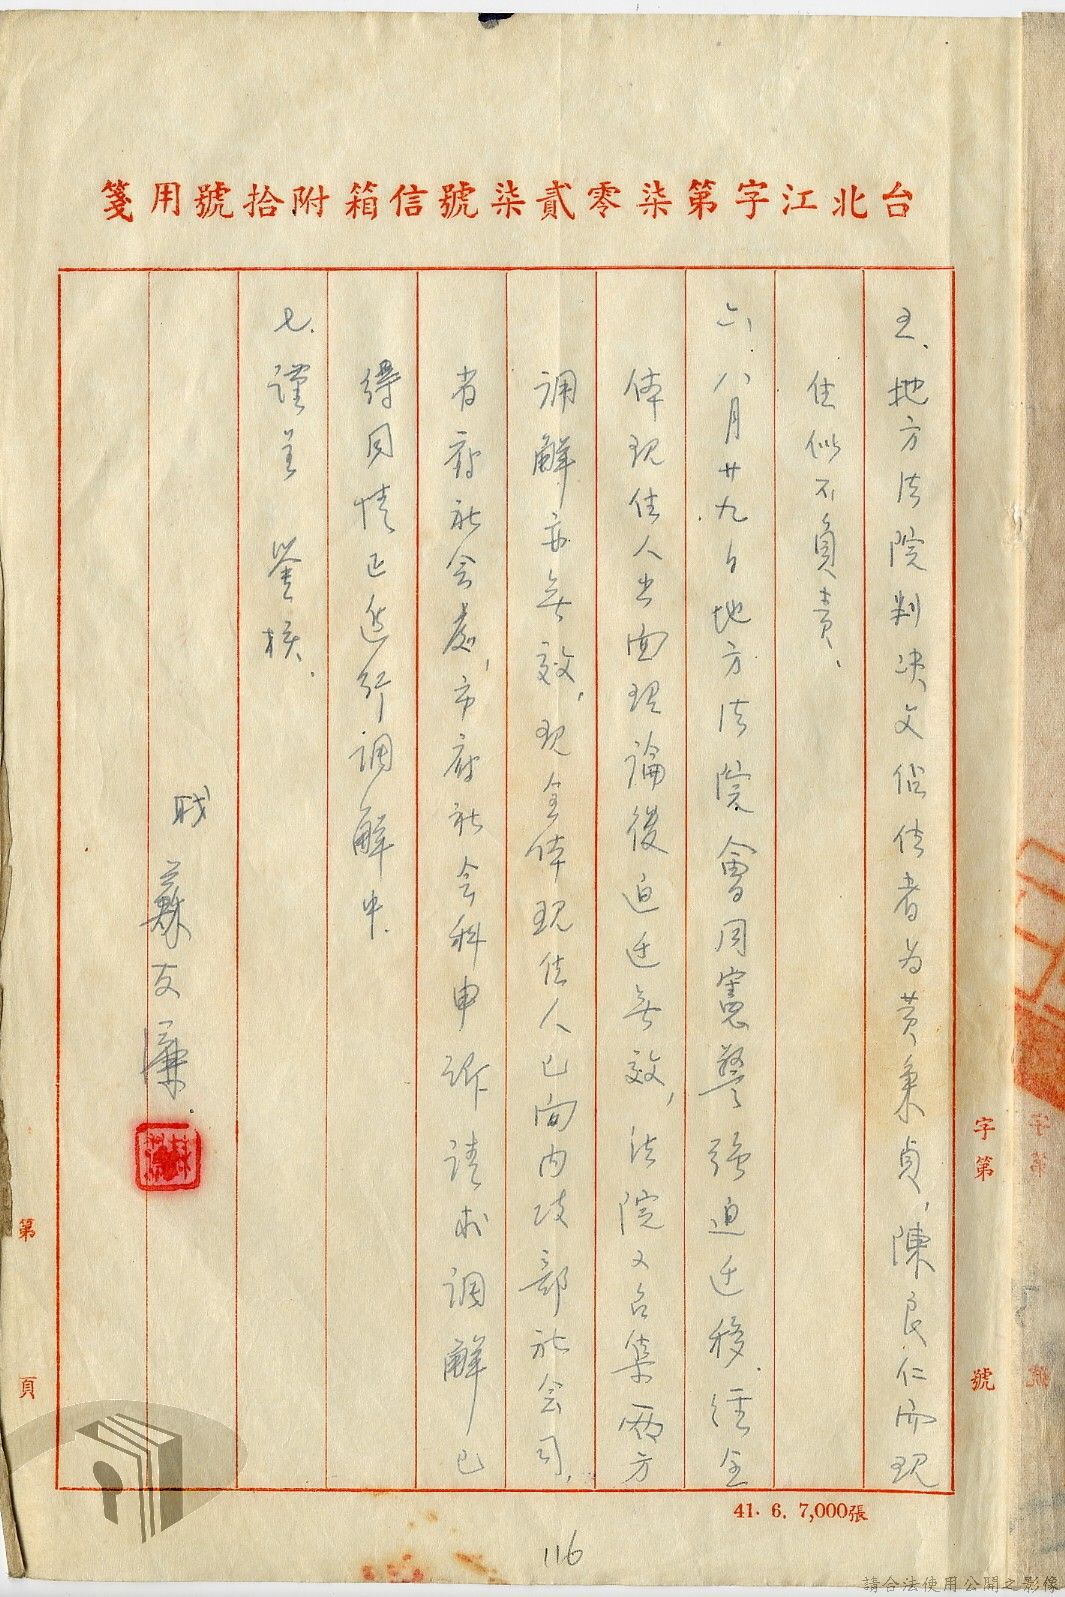 台北江字第柒零貳柒號信箱附拾號用箋
五、地方法院判决文佔住者為黄秉貞，陳良仁而現
住似不負責、
六、八月廿九日地方法院會同憲警強迫迁移．經全
体現住人出面理論後迫迁無效，法院又召集兩方
調解亦無效，現全体現住人已向內政部社会司，
省府社会處，市府社会科申訴請求調解已
得同情正進行調解中．
七．謹呈　鑒核．
職
蘇友廉．
字第　號
第　頁
41. 6. 7,000張
116
請合法使用公開之影像